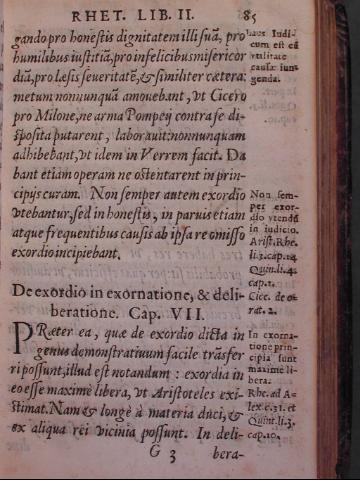 RHET. LIB. II. 85
gando pro honestis dignitatem illi suã, pro
humilibus iustitiã, pro infelicibus misericor
diã, pro læsis seueritatẽ, & similiter cætera:
metum nonnunquã amouebant, vt Cicero
pro Milone, ne arma Pompeij contra se di-
sposita putarent, laborauit: nonnunquam
adhibebant, vt idem in Verrem facit. Da
bant etiam operam ne ostentarent in prin-
cipijs curam. Non semper autem exordio
vtebantur, sed in honestis, in paruis etiam
atque frequentibus causis ab ipsa re omisso
exordio incipiebant.
De exordio in exornatione, & deli-
beratione. Cap. VII.
PRæter ea, quæ de exordio dicta in
genus demonstratiuum facile trãsfer
ri possunt, illud est notandum: exordia in
eo esse maximè libera, vt Aristoteles exi-
stimat. Nam & longè à materia duci, &
ex aliqua rei vicinia possunt. In deli-
G 3 bera-
haus Iudi-
cum est cũ
vtilitate
causæ iun
genda.
Non sem-
per exor-
dio vtendũ
in iudicio.
Arist. Rhe.
li.3.cap.14
Quin.li.4.
cap.1.
Cice. de o-
rat. 2.
In exorna-
tione prin-
cipia sunt
maximè li-
bera.
Rhe. ad A-
lex c.31. et
Quint.li.3.
cap.10.